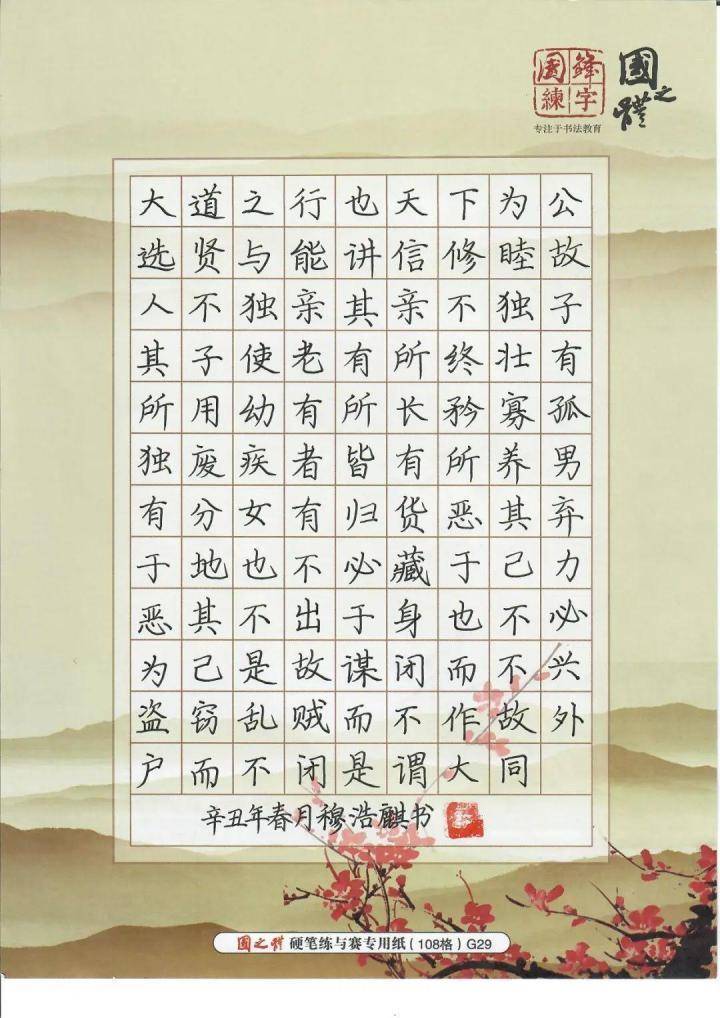 圆锋练字
专注于书法教育
國之體
大道之行也天下为公
选贤与能讲信修睦故
人不独亲其亲不独子
其子使老有所终壮有
所用幼有所长矜寡孤
独废疾者皆有所养男
有分女有归货恶其弃
于地也不必藏于己力
恶其不出于身也不必
为己是故谋闭而不兴
盗窃乱贼而不作故外
户而不闭是谓大同
辛丑年春月穆浩麒书
國之體 硬笔练与赛专用纸(108格)G29